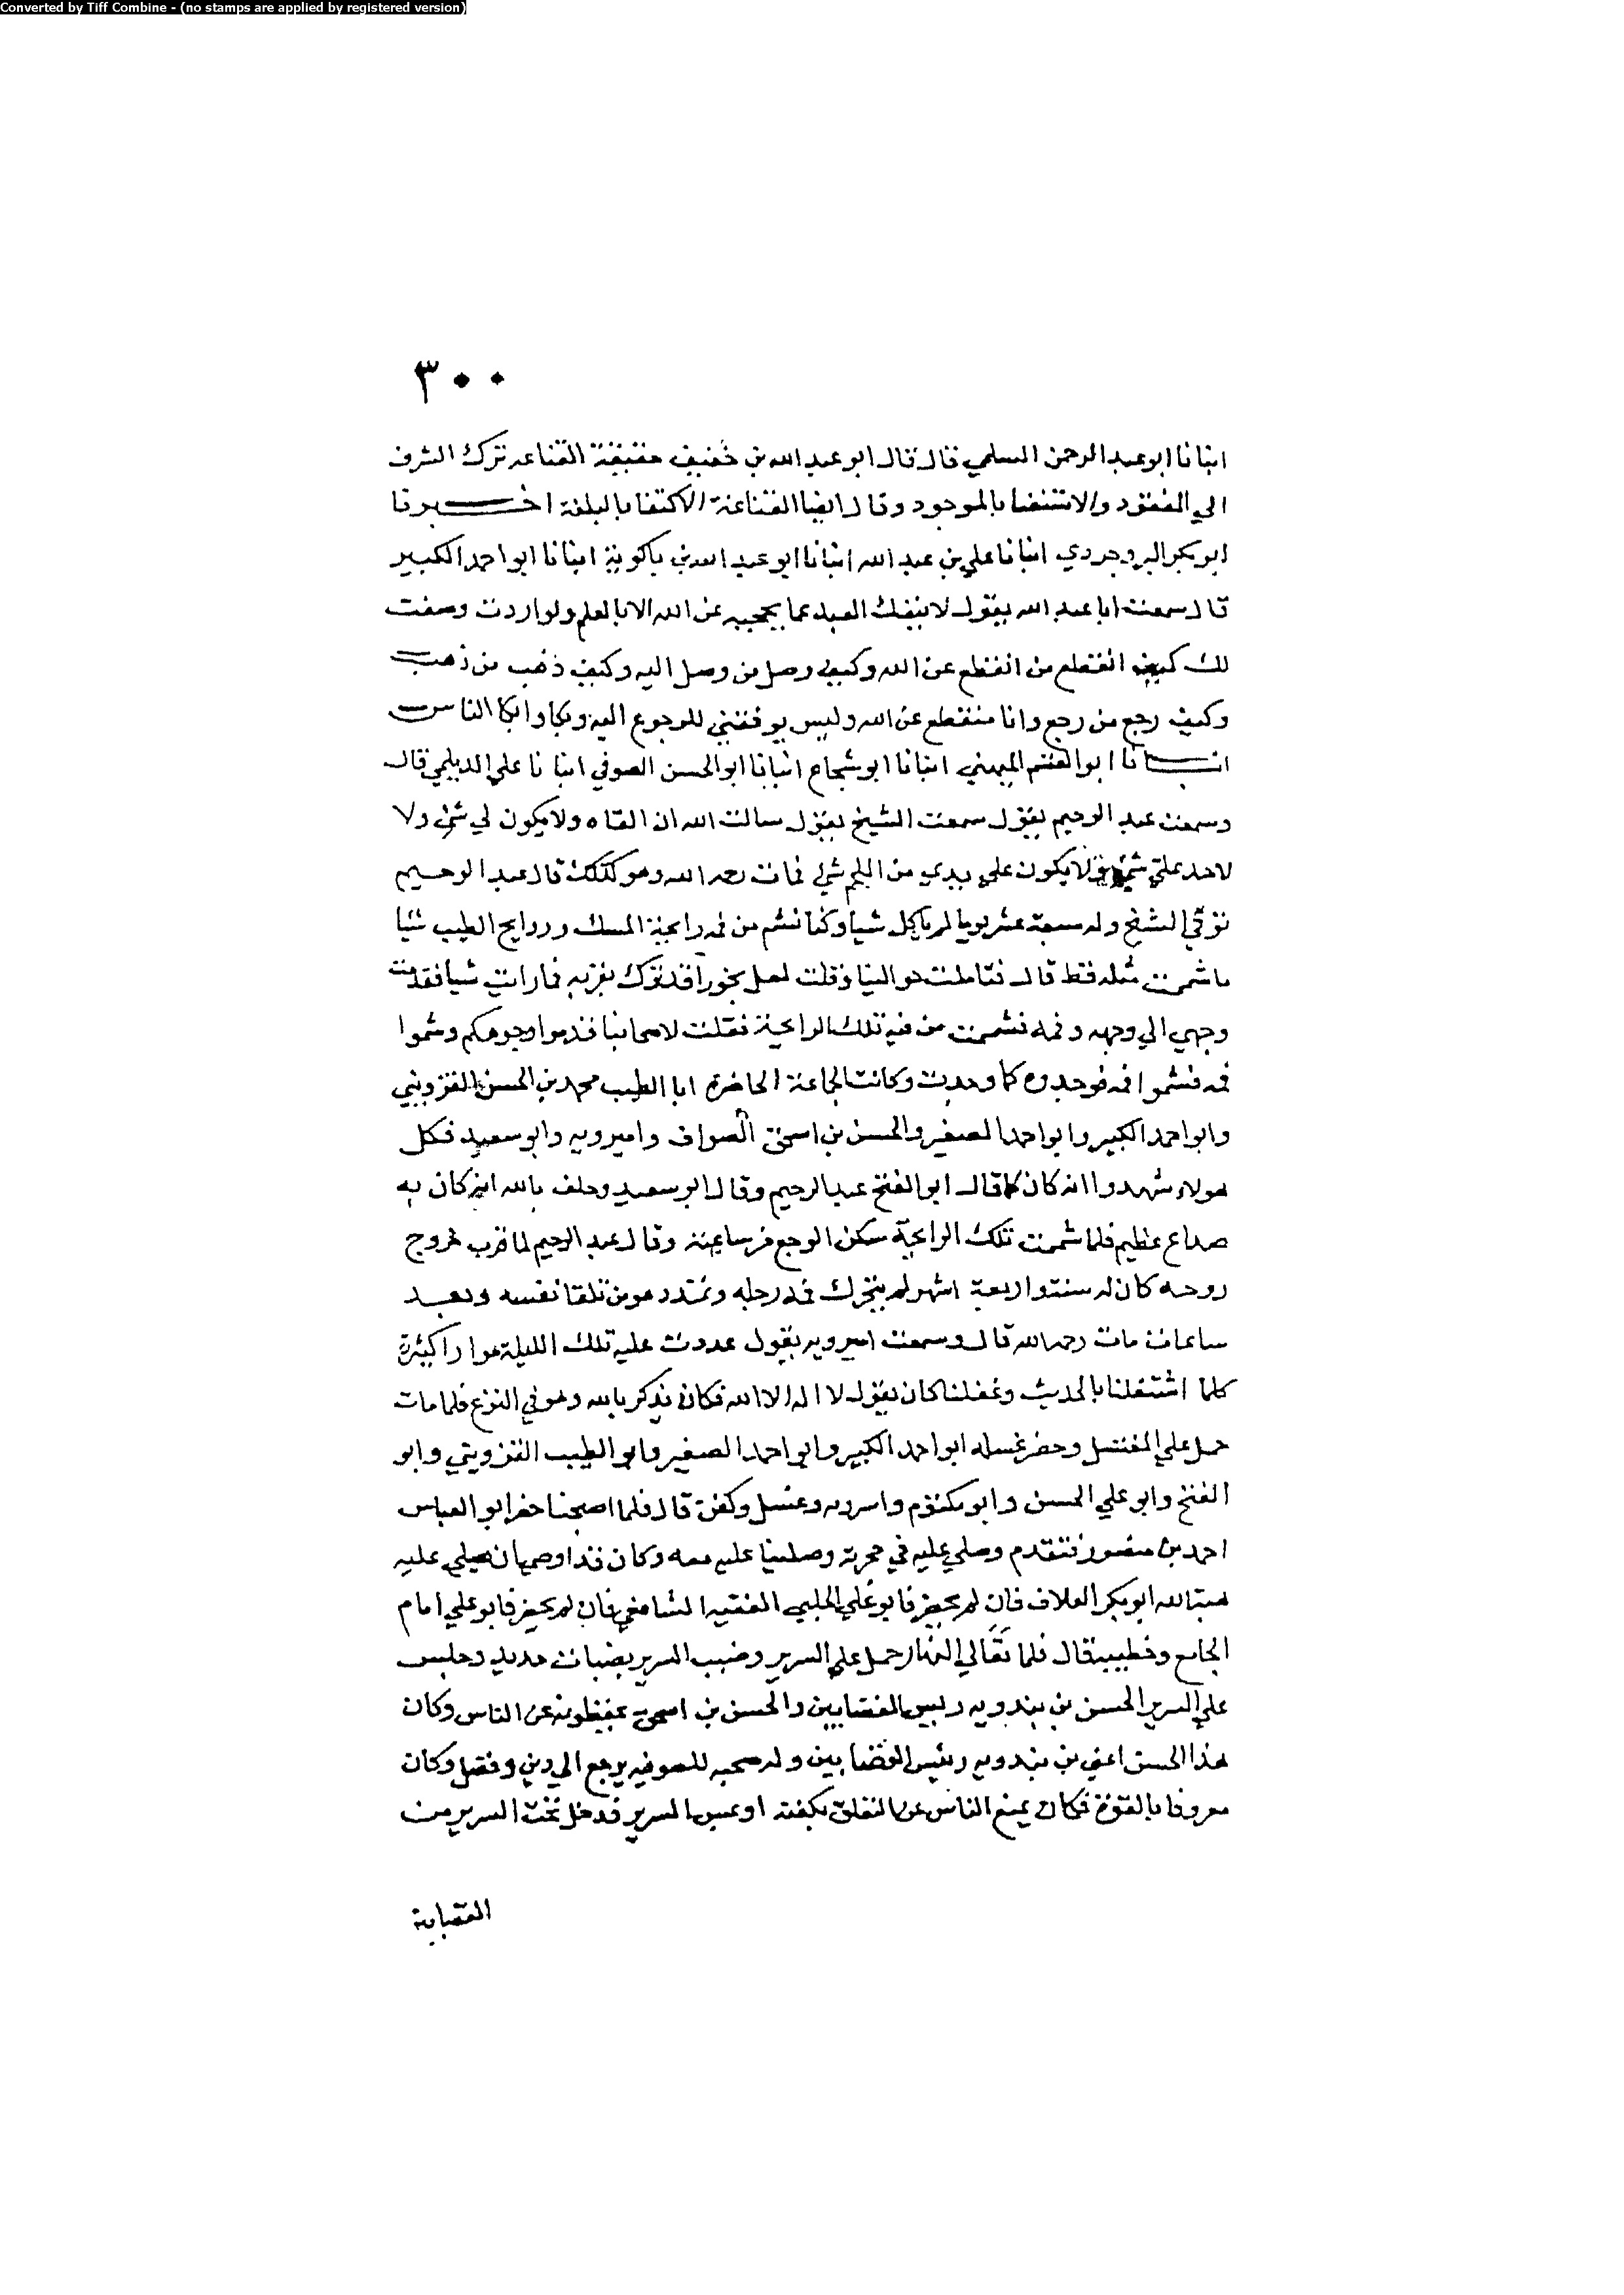 Converted by Tiff Combine - (no stamps are applied by registered version)
٣٠٠
انبانا ابو عبد الرحمن السلمي قال قال ابو عبد الله بن خفيف حقيقة القناعه ترك الشرف
الي المفقود والاستغنا بالموجود وقال ايضا القناعة الاكتفا بالبلغة اخبرنا
ابو بكر البروجردي انبانا علي بن عبد الله انبانا ابو عبد الله بن باكوية انبانا ابو احمد الكبير
قال سمعت ابا عبد الله يقول لا ينفك العبد عما يحجبه عن الله الا بالعلم ولو اردت وصفت
لك كيف انقطع من انقطع عن الله وكيف وصل من وصل اليه وكيف ذهب من ذهب
وكيف رجع من رجع وانا منقطع عن الله وليس يوفقني للرجوع اليه وبكا وابكا الناس
انبانا ابو الغنم الميهني انبانا ابو شجاع انبانا ابو الحسن الصوفي انبانا علي الديلمي قال
وسمعت عبد الرحيم يقول سمعت الشيخ يقول سالت الله ان القاه ولا يكون لي شي ولا
لاحد علي شي ولا يكون علي بدني من اللحم شي فمات رحمه الله وهو كذلك قال عبد الرحيم
توفي الشيخ وله سبعة عشر يوما لم ياكل شيا وكنا نشم من فمه رايحة المسك وروايح الطيب شيا
ما شممت مثله قط قال فتاملت حوالينا وقلت لعل بخورا قد ترك بقربه فما رايت شيا فقدمت
وجهي الي وجهه وفمه فشممت من فيه تلك الرايحة فقلت لاصحابنا قدموا وجوهكم وشموا
فمه فشموا فمه فوجدوه كما وجدت وكانت الجماعة الحاضرة ابا الطيب محمد بن الحسن القزويني
وابو احمد الكبير وابو احمد الصغير والحسن بن اسحق الصواف واميرويه وابو سعيد فكل
هولاء شهدوا انه كان كما قال ابو الفتح عبد الرحيم وقال ابو سعيد وحلف بالله انه كان به
صداع عظيم فلما شممت تلك الرايحة سكن الوجع من ساعته وقال عبد الرحيم لما قرب خروج
روحه كان له سنة واربعة اشهر لم يتحرك فمد رحله وتمدد هو من تلقا نفسه وبعد
ساعات مات رحمه الله قال وسمعت اميرويه يقول عددت عليه تلك الليلة مرارا كثيرة
كلما اشتغلنا بالحديث وغفلنا كان يقول لا اله الا الله فكان يذكر بالله وهو في النزع فلما مات
حمل علي المغتسل وحضر غسله ابو احمد الكبير وابو احمد الصغير وابو الطيب القزويني وابو
الفتح وابو علي الحسن وابو مكتوم واسرويه وغسل وكفن قال فلما اصبحنا حضر ابو العباس
احمد بن منصور فتقدم وصلي عليه في حجرته وصلينا عليه معه وكان قد اوصي ان يصلي عليه
هبة الله ابو بكر العلاف فان لم يحضر فابو علي الحلبي الفقيه الشافعي فان لم يحضر فابو علي امام
الجامع وخطيبه قال فلما تعالي النهار حمل علي السرير وضبب السرير بضبات حديد وجلس
علي السرير الحسن بن بندويه رييس القصابين والحسن بن اسحق يحفظونه عن الناس وكان
هذا الحسن اعني بن بندويه رئيس القصابين وله صحبه للصوفيه يرجع الي دين وفضل وكان
معروفا بالقوة فكان يمنع الناس عن التعلق بكفنه او عسر السرير فدخل تحت السرير من
القصابية